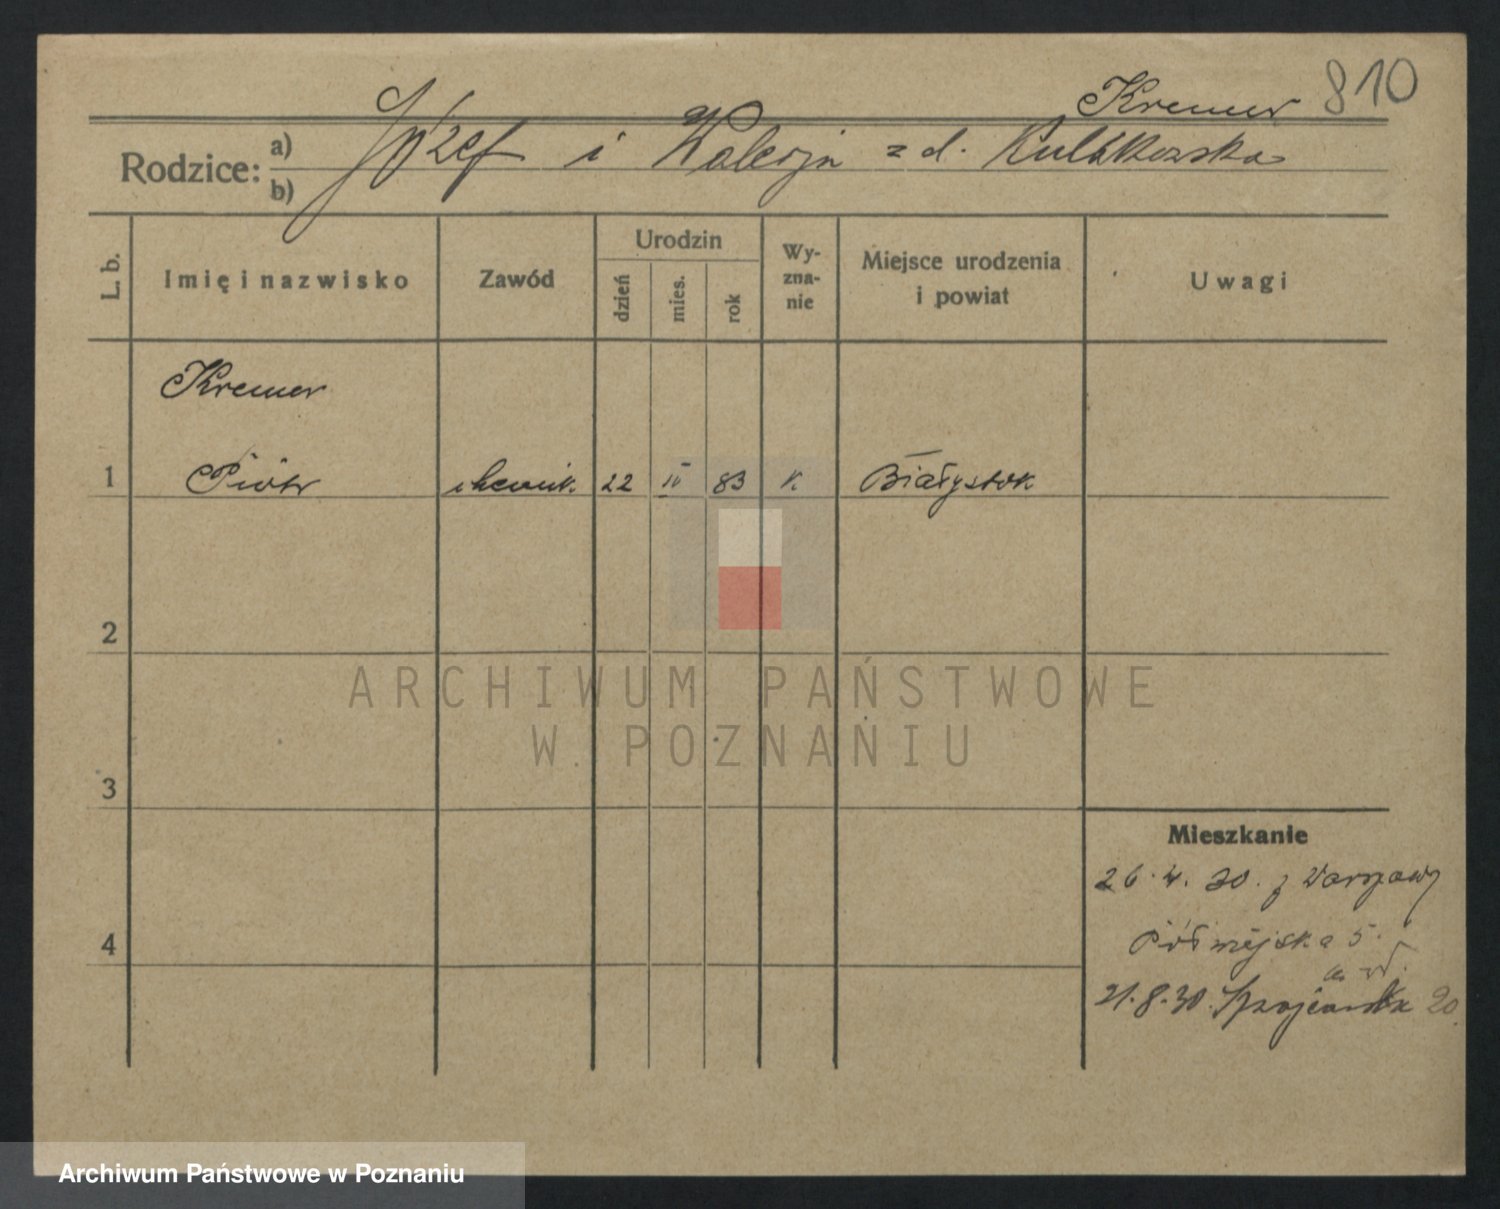 810
Kremer
Rodzice: a) b) Józef i Walerja z d.
L. b. Imię i nazwisko Zawód Urodzin dzień mies. rok Wy-zna-nie Miejsce urodzenia i powiat Uwagi
Kremer
1 Piotr chemik. 22 IV 83 K Białystok
2
ARCHIWUM PAŃSTWOWE
W POZNANIU
3
Mieszkanie
26. 4. 30. z Warszawy
4
Półwiejska 5.
21. 8. 30. 20
Archiwum Państwowe w Poznaniu